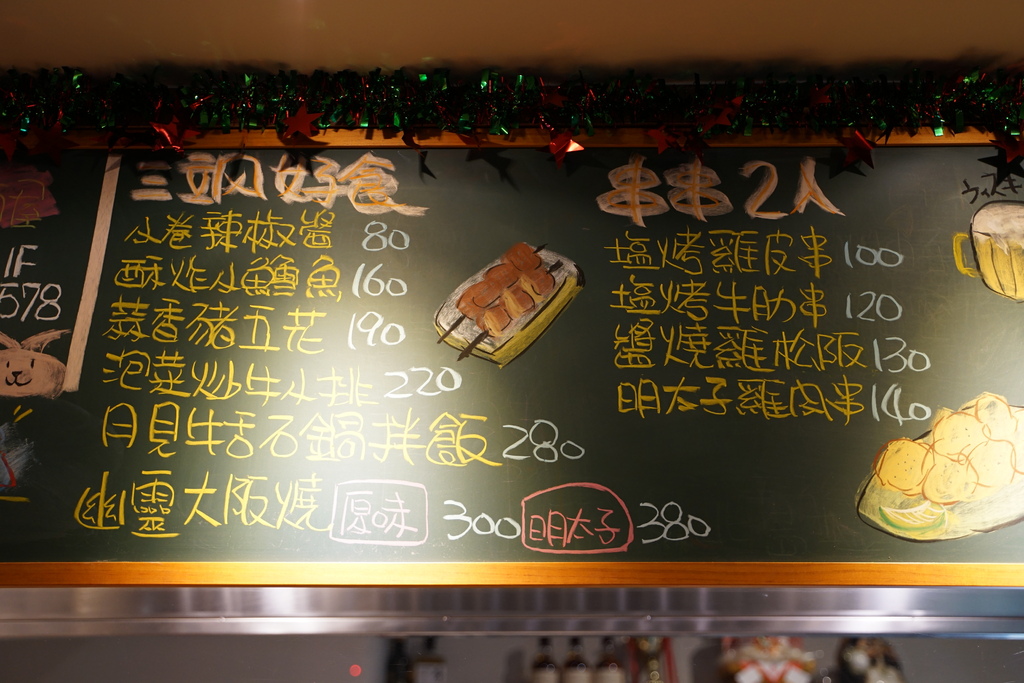 1F
578
三訳好食
小卷辣椒醬 80
酥炸小鱻魚 160
蒜香豬五花 190
泡菜炒牛小排 220
月見牛活石鍋拌飯 280
幽靈大阪燒 原味 300 明太子 380
串串2人
塩烤雞皮串 100
塩烤牛肋串 120
醬燒雞松阪 130
明太子雞肉串 140
ウィスキ